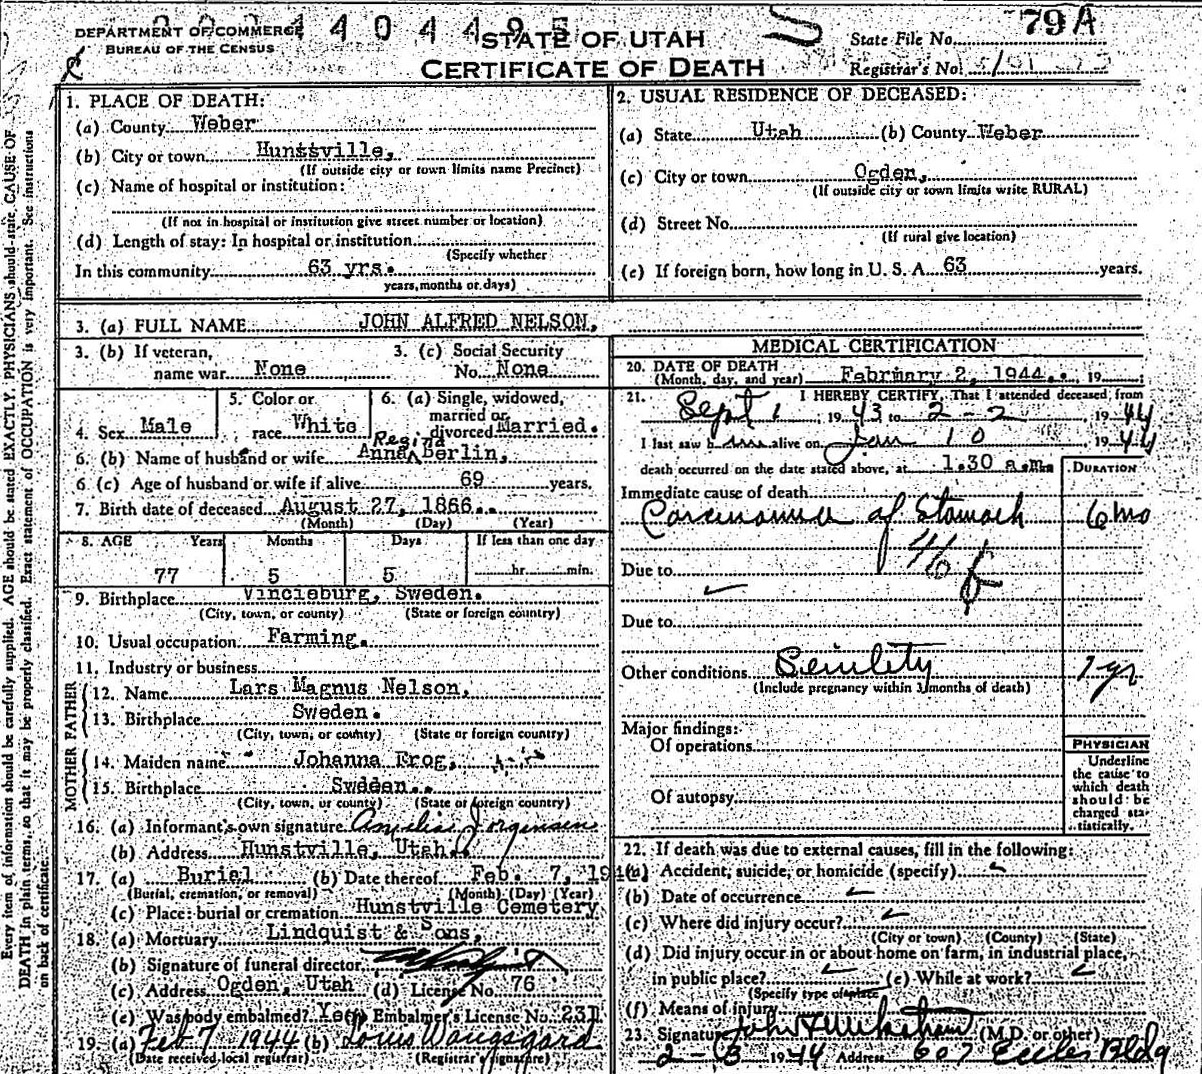 DEPARTMENT OF COMMERCE
BUREAU OF THE CENSUS
STATE OF UTAH
CERTIFICATE OF DEATH
State File No. 79A
Registrar's No.
1. PLACE OF DEATH:
(a) County Weber
(b) City or town Hunssville,
(If outside city or town limits name Precinct)
(c) Name of hospital or institution:
(If not in hospital or institution give street number or location)
(d) Length of stay: In hospital or institution
(Specify whether
In this community 63 yrs.
years, months or days)
2. USUAL RESIDENCE OF DECEASED:
(a) State Utah (b) County Weber
(c) City or town Ogden,
(If outside city or town limits write RURAL)
(d) Street No.
(If rural give location)
(e) If foreign born, how long in U. S. A. 63 years.
3. (a) FULL NAME JOHN ALFRED NELSON,
3. (b) If veteran, name war None
3. (c) Social Security No. None
4. Sex Male
5. Color or race White
6. (a) Single, widowed, married or divorced Married.
6. (b) Name of husband or wife Anna Regina Berlin,
6. (c) Age of husband or wife if alive 69 years.
7. Birth date of deceased August 27, 1866.
(Month) (Day) (Year)
8. AGE Years Months Days If less than one day
77 5 5 hr. min.
9. Birthplace Vincieburg, Sweden.
(City, town, or county) (State or foreign country)
10. Usual occupation Farming.
11. Industry or business
FATHER
12. Name Lars Magnus Nelson,
13. Birthplace Sweden.
(City, town, or county) (State or foreign country)
MOTHER
14. Maiden name Johanna Frog,
15. Birthplace Sweden.
(City, town, or county) (State or foreign country)
16. (a) Informant's own signature Amelia Jorgensen
(b) Address Hunstville, Utah.
17. (a) Burial (b) Date thereof Feb. 7, 194
(Burial, cremation, or removal) (Month) (Day) (Year)
(c) Place: burial or cremation Hunstville Cemetery
18. (a) Mortuary Lindquist & Sons,
(b) Signature of funeral director
(c) Address Ogden, Utah (d) License No. 76
(e) Was body embalmed? Yes Embalmer's License No. 231
19. (a) Feb 7 1944 (b) Louis Wangsgard
(Date received local registrar) (Registrar's signature)
MEDICAL CERTIFICATION
20. DATE OF DEATH
(Month, day, and year) February 2, 1944. , 19
21. I HEREBY CERTIFY, That I attended deceased from
Sept 1 , 1943 to 2-2 , 1944
I last saw him alive on Jan 10 , 1944
death occurred on the date stated above, at 1.30 a.m. DURATION
Immediate cause of death
Carcinoma of Stomach 6 mo
46 f
Due to
Due to
Other conditions Senility 1 yr
(Include pregnancy within 3 months of death)
Major findings:
Of operations
Of autopsy
PHYSICIAN
Underline
the cause to
which death
should be
charged sta-
tistically.
22. If death was due to external causes, fill in the following:
(a) Accident, suicide, or homicide (specify)
(b) Date of occurrence
(c) Where did injury occur?
(City or town) (County) (State)
(d) Did injury occur in or about home on farm, in industrial place,
in public place? (e) While at work?
(Specify type of place
(f) Means of injury
23. Signature (M.D. or other)
2-3 1944 Address 607 Eccles Bldg
Every item of information should be carefully supplied. AGE should be stated EXACTLY. PHYSICIANS should state CAUSE OF
DEATH in plain terms, so that it may be properly classified. Exact statement of OCCUPATION is very important. See instruction
on back of certificate.